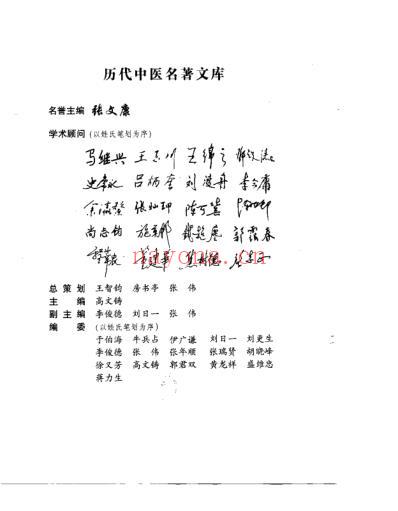 历代中医名著文库
名誉主编 张文康
学术顾问(以姓氏笔划为序)
马继兴 王
史常永 吕炳奎 刘渡舟 李今庸
余瀛鳌 张灿玾 陈可冀
尚志钧 施奠邦 钱超尘 郭霭春
董建华 焦树德
总策划 王智钧 房书亭 张 伟
主 编 高文铸
副主编 李俊德 刘日一 张 伟
编 委 (以姓氏笔划为序)
于伯海 牛兵占 伊广谦 刘日一 刘更生
李俊德 张 伟 张年顺 张瑞贤 胡晓峰
徐又芳 高文铸 郭君双 黄龙祥 盛维忠
蒋力生